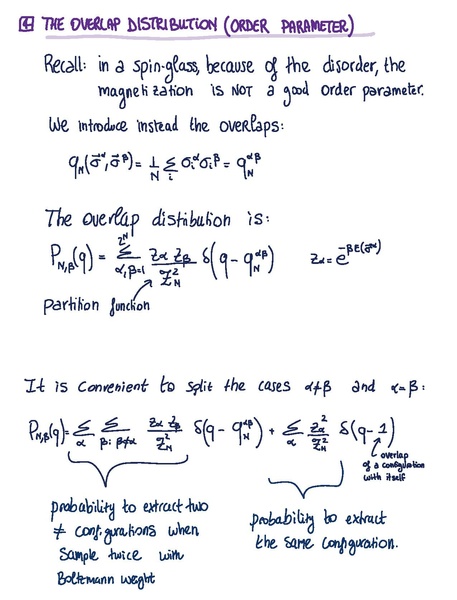 4 THE OVERLAP DISTRIBUTION (ORDER PARAMETER)
Recall: in a spin-glass, because of the disorder, the
magnetization is NOT a good order parameter.
We introduce instead the overlaps:
q_N(σ⃗^α, σ⃗^β) = 1/N Σ_i σ_i^α σ_i^β = q_N^{αβ}
The overlap distribution is:
P_{N,β}(q) = Σ_{α,β=1}^{2^N} z_α z_β / Z_N^2 δ(q - q_N^{αβ})   z_α = e^{-βE(σ⃗^α)}
partition function
It is convenient to split the cases α≠β and α=β:
P_{N,β}(q) = Σ_α Σ_{β: β≠α} z_α z_β / Z_N^2 δ(q - q_N^{αβ}) + Σ_α z_α^2 / Z_N^2 δ(q-1)
overlap
of a configuration
with itself
probability to extract two
≠ configurations when
sample twice with
Boltzmann weight
probability to extract
the same configuration.